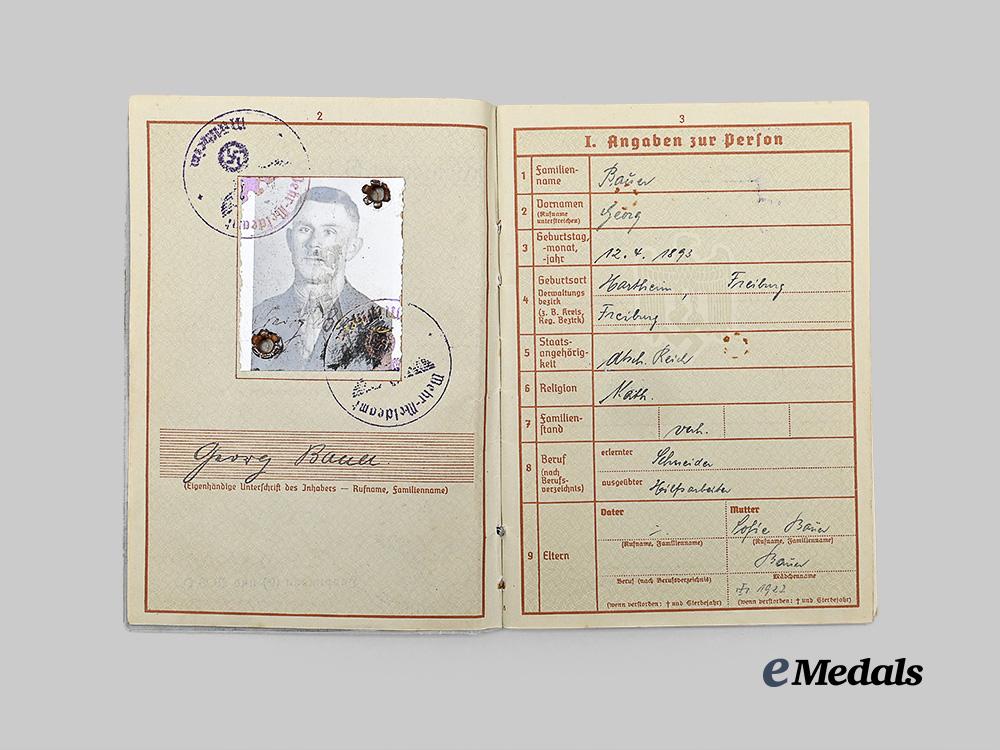 2
Müllheim
Wehr-Meldeamt
Wehr-Meldeamt
Georg Bauer
(Eigenhändige Unterschrift des Inhabers — Rufname, Familienname)
3
I. Angaben zur Person
1 Familienname Bauer
2 Vornamen (Rufname unterstreichen) Georg
3 Geburtstag, -monat, -jahr 12. 4. 1893
4 Geburtsort Verwaltungsbezirk (z. B. Kreis, Reg. Bezirk) Hartheim, Freiburg
Freiburg
5 Staatsangehörigkeit dtsch. Reich
6 Religion Kath.
7 Familienstand verh.
8 Beruf (nach Berufsverzeichnis) erlernter Schneider
ausgeübter Hilfsarbeiter
9 Eltern
Vater
(Rufname, Familienname)
Beruf (nach Berufsverzeichnis)
(wenn verstorben: † und Sterbejahr)
Mutter
Sofie Bauer
(Rufname, Familienname)
Bauer
Mädchenname
1923
(wenn verstorben: † und Sterbejahr)
eMedals